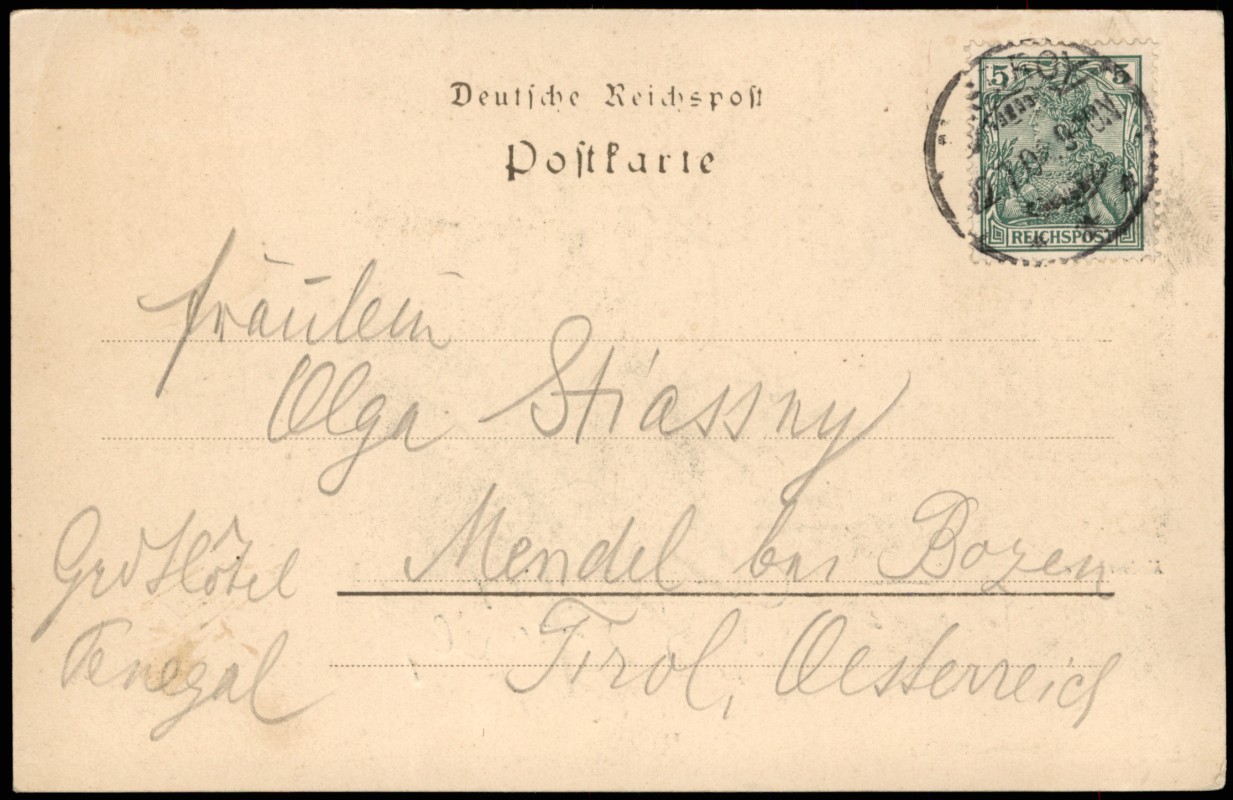 Deutsche Reichspost
Postkarte
5 5
REICHSPOST
Fräulein
Olga Stiassny
Mendel bei Bozen
Tirol, Oesterreich
Grd Hôtel
Penegal